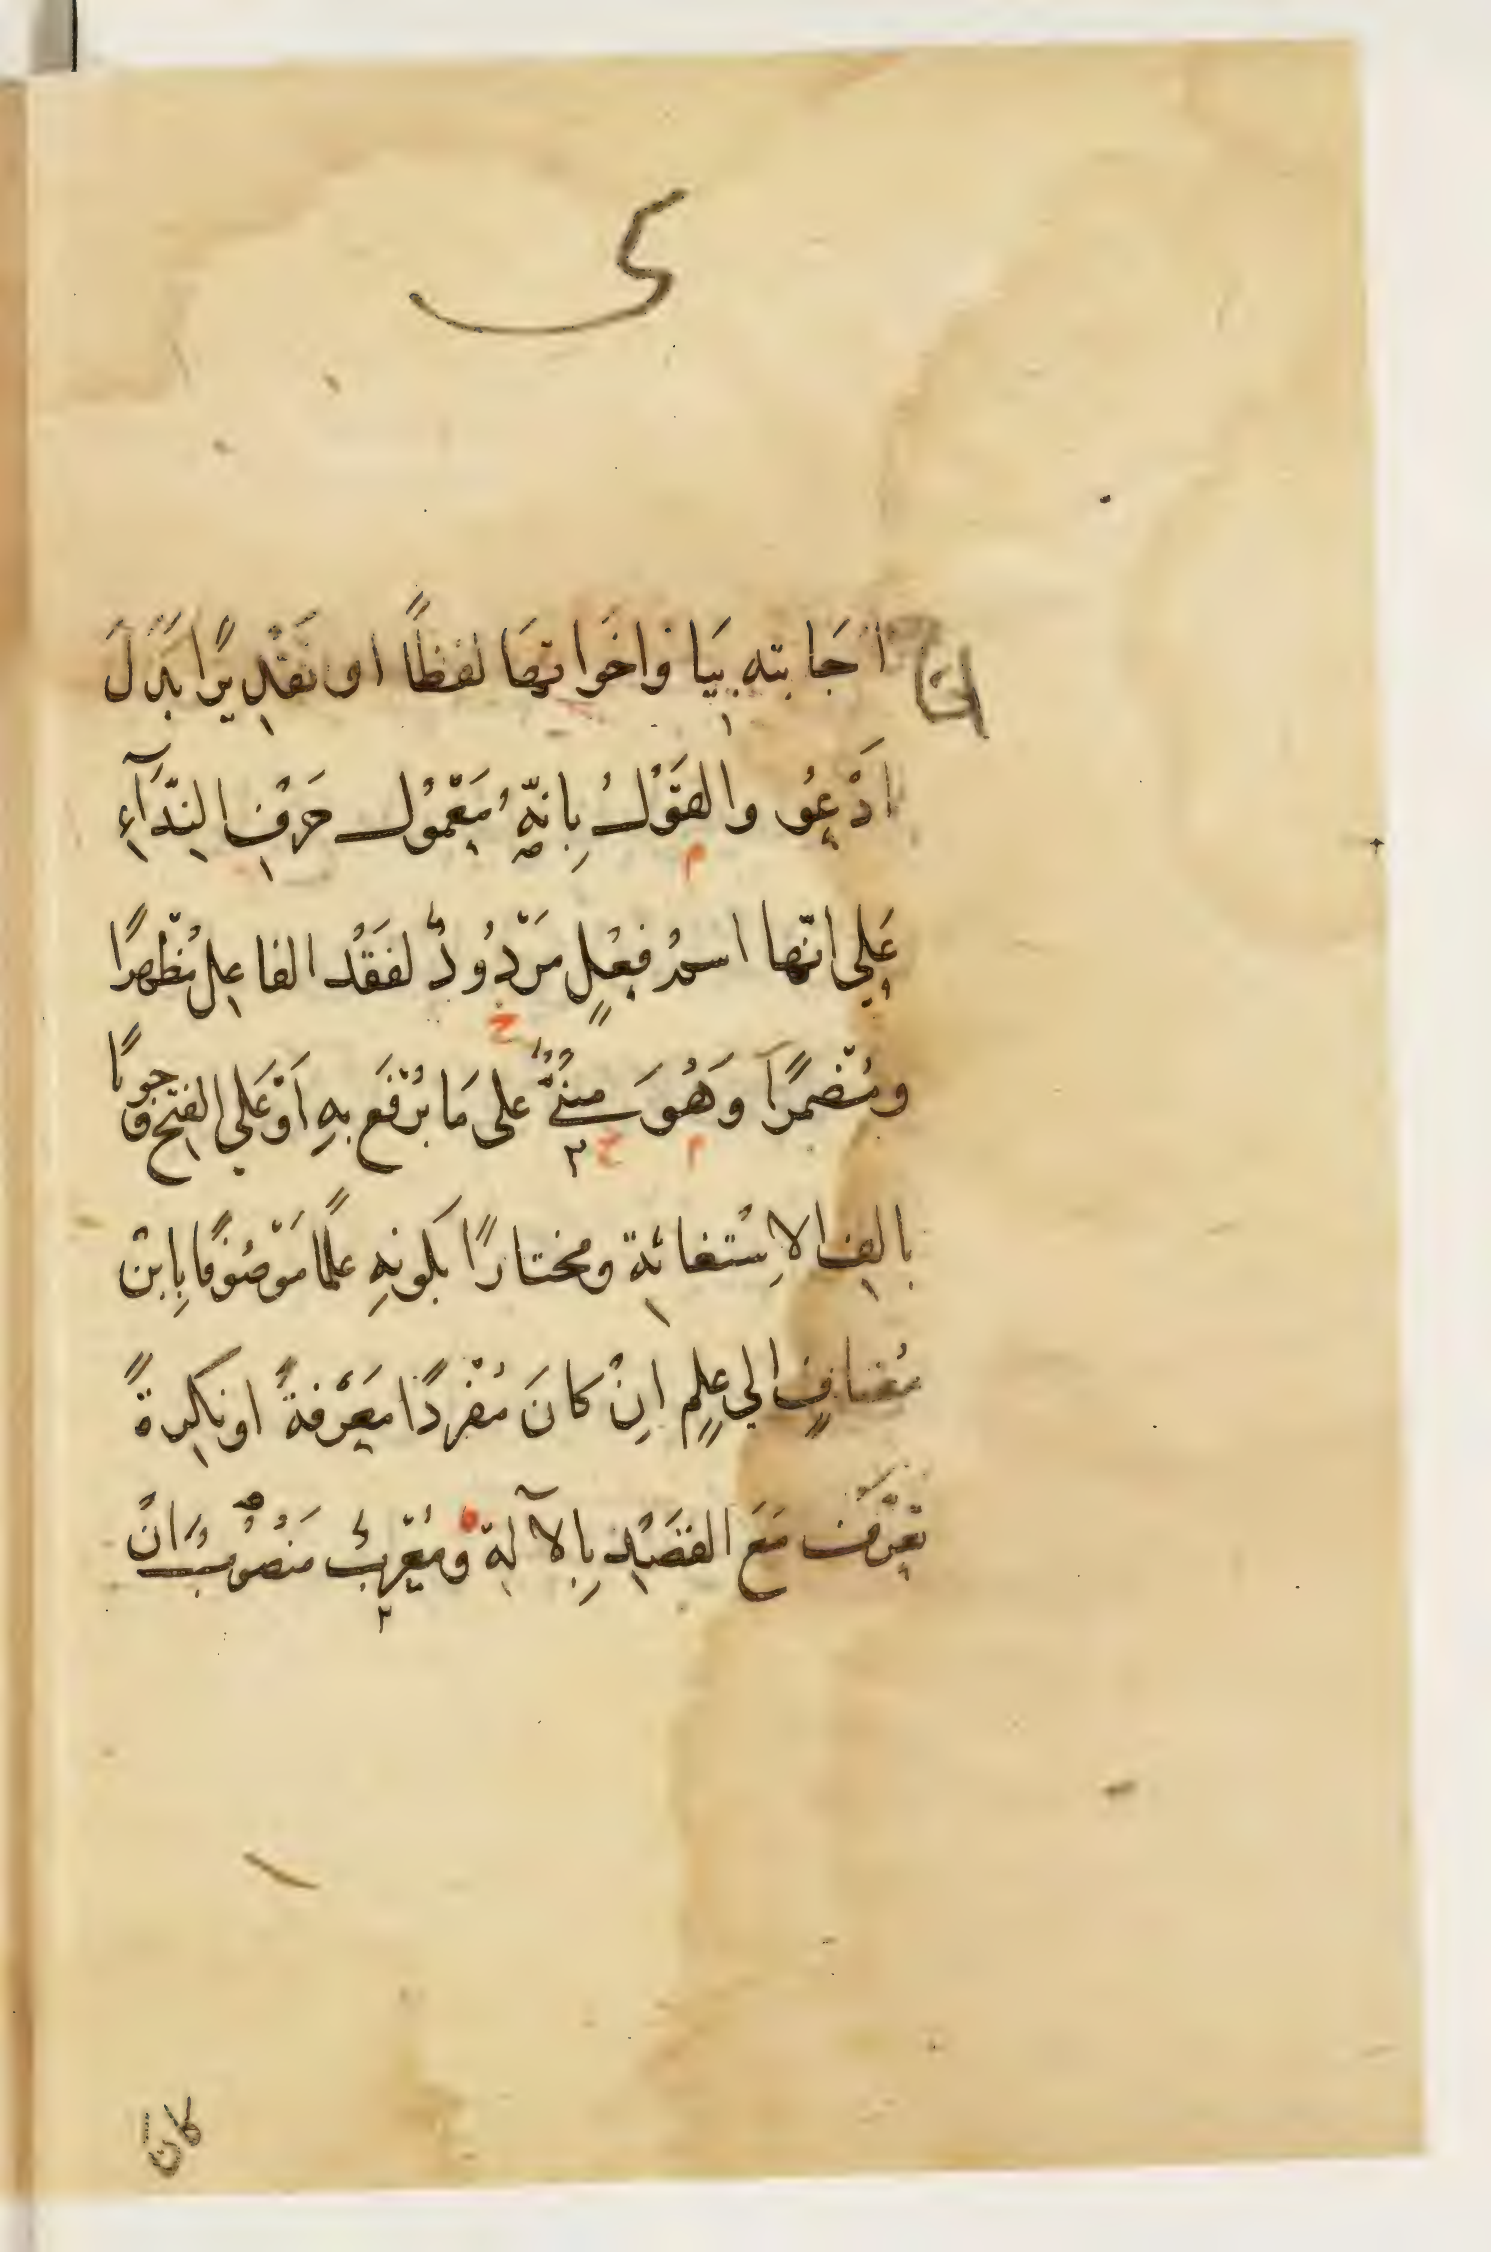 اجَابته بيَا وَاخَواتهَا لفظاً او تَقدِيرًا بَدَلَ
اَدْعُو والقَوْلُ بِانهِّ مَعْمُول حَرْفِ النِّدَآءِ
عَلي انّها اسمُ فِعْلٍ مَرْدُودٌ لفَقْد الفاعِل مُظْهرًا
ومُضمرًا وَهُوَ مبنيٌّ على مَا يُرْفَع بهِ اَوْ عَلي الفتح وجوبًا
بالِف الاِسْتغاثةِ ومختارًا بكَونهِ علَمًا مَوْصُوفًا بِابْن
مُضافٍ الي علمٍ اِنْ كانَ مُفْردًا مَعْرفةً او نكِرةً
تعرَّفت مَعَ القَصْدِ بِالآلةِ ومُعْربٌ مَنصُوبٌ اِنْ
كان